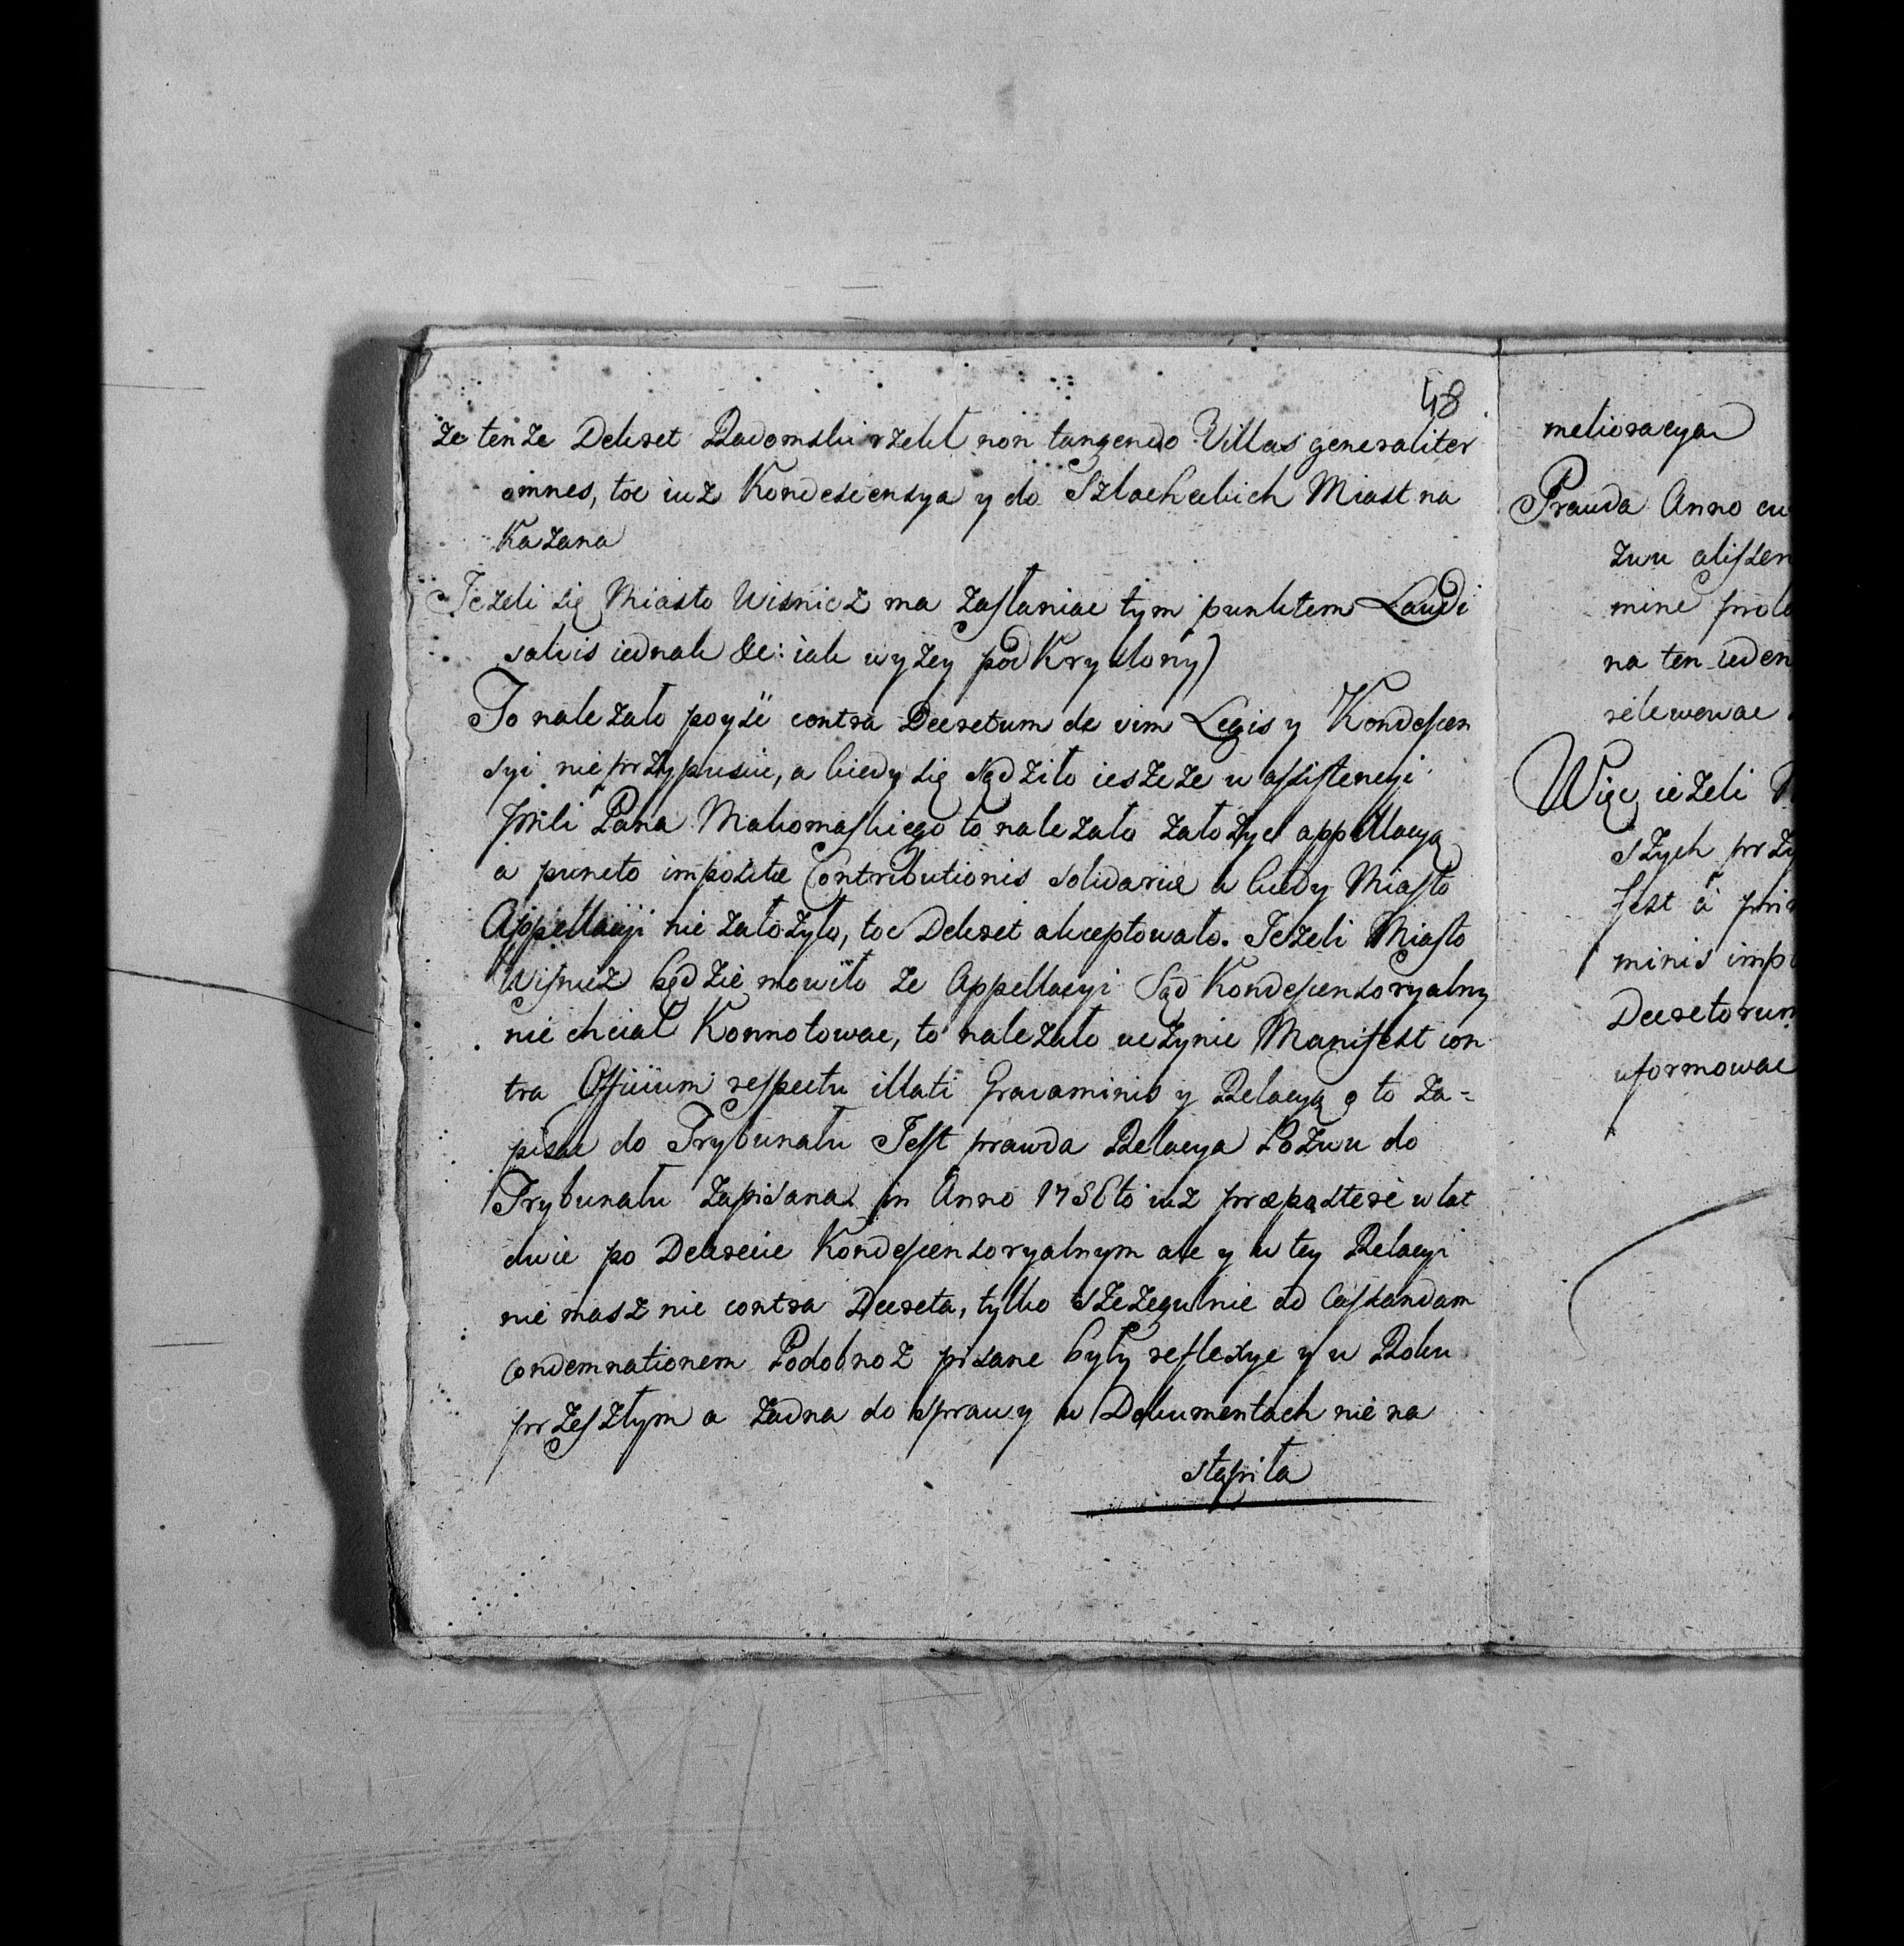 48
że tenże Dekret Radomski rzekł non tangendo Villas generaliter
omnes, toć iuż Kondescensya y do Szlacheckich Miast na
Kazana
Jeżeli się Miasto Wisnicz ma zasłaniać tym punktem Laudi
salvis iednak &c: iak wyżey podkryslony)
To należało poyść contra Decretum de vim Legis y Kondescen
syi nie przypuścić, a kiedy się sądziło ieszcze w assistencyi
Pana Makomaskiego to należało założyć appellacyą
a puncto impositæ Contributionis solidariæ a kiedy Miasto
Appellacyi nie założyło, toć Dekret akceptowało. Jeżeli Miasto
Wisnicz będzie mowiło że Appellacyi Sąd Kondescensoryalny
nie chciał Konnotować, to należało uczynić Manifest con
tra Officium respectu illati Gravaminis y Relacyą o to za-
pisać do Trybunału Jest prawda Relacya Pozwu do
Trybunału zapisana in Anno 1756 to iuż præpostere w lat
dwie po Dekrecie Kondescensoryalnym ale y w tey Relacyi
nie masz nic contra Decreta, tylko szczegulnie ad Cassandam
Condemnationem Podobnoż pisane były reflexye y w Roku
przeszłym a żadna do sprawy w Dokumentach nie na
stąpiła
melioracya
Prawda Anno
zwu
mine
na ten ieden
relewować
Więc ieżeli
szych
fest à
minis
Decretorum
uformować